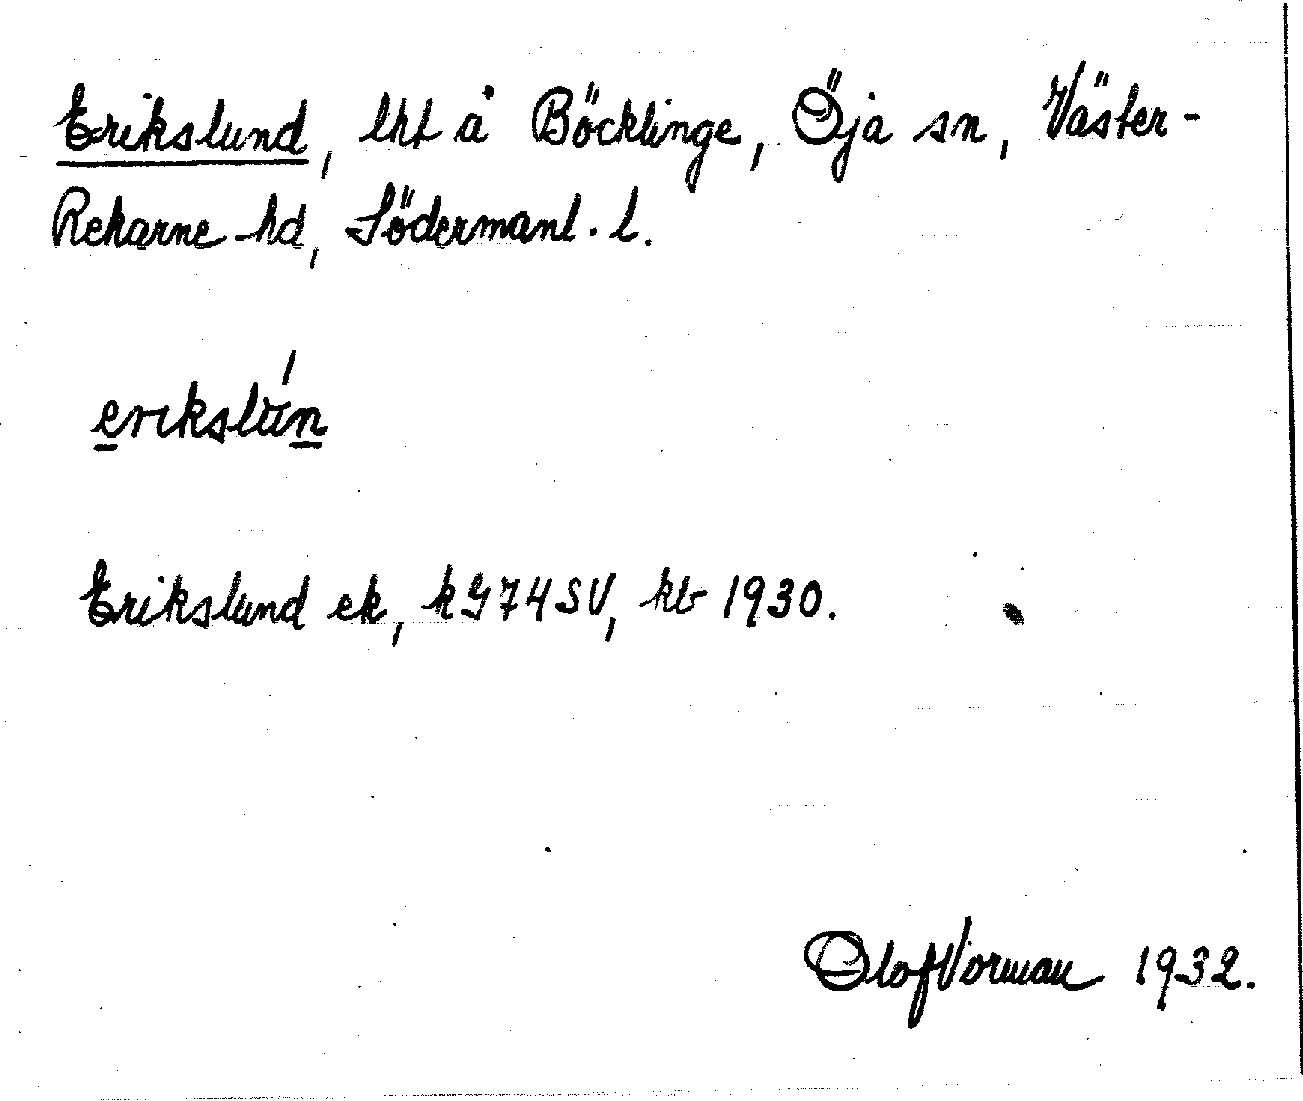 Erikslund, lht å Böcklinge, Öja sn, Väster-
Rekarne hd, Södermanl. l.
erikslún
Erikslund ek, k974SV, kb 1930.
Olof Vorman 1932.